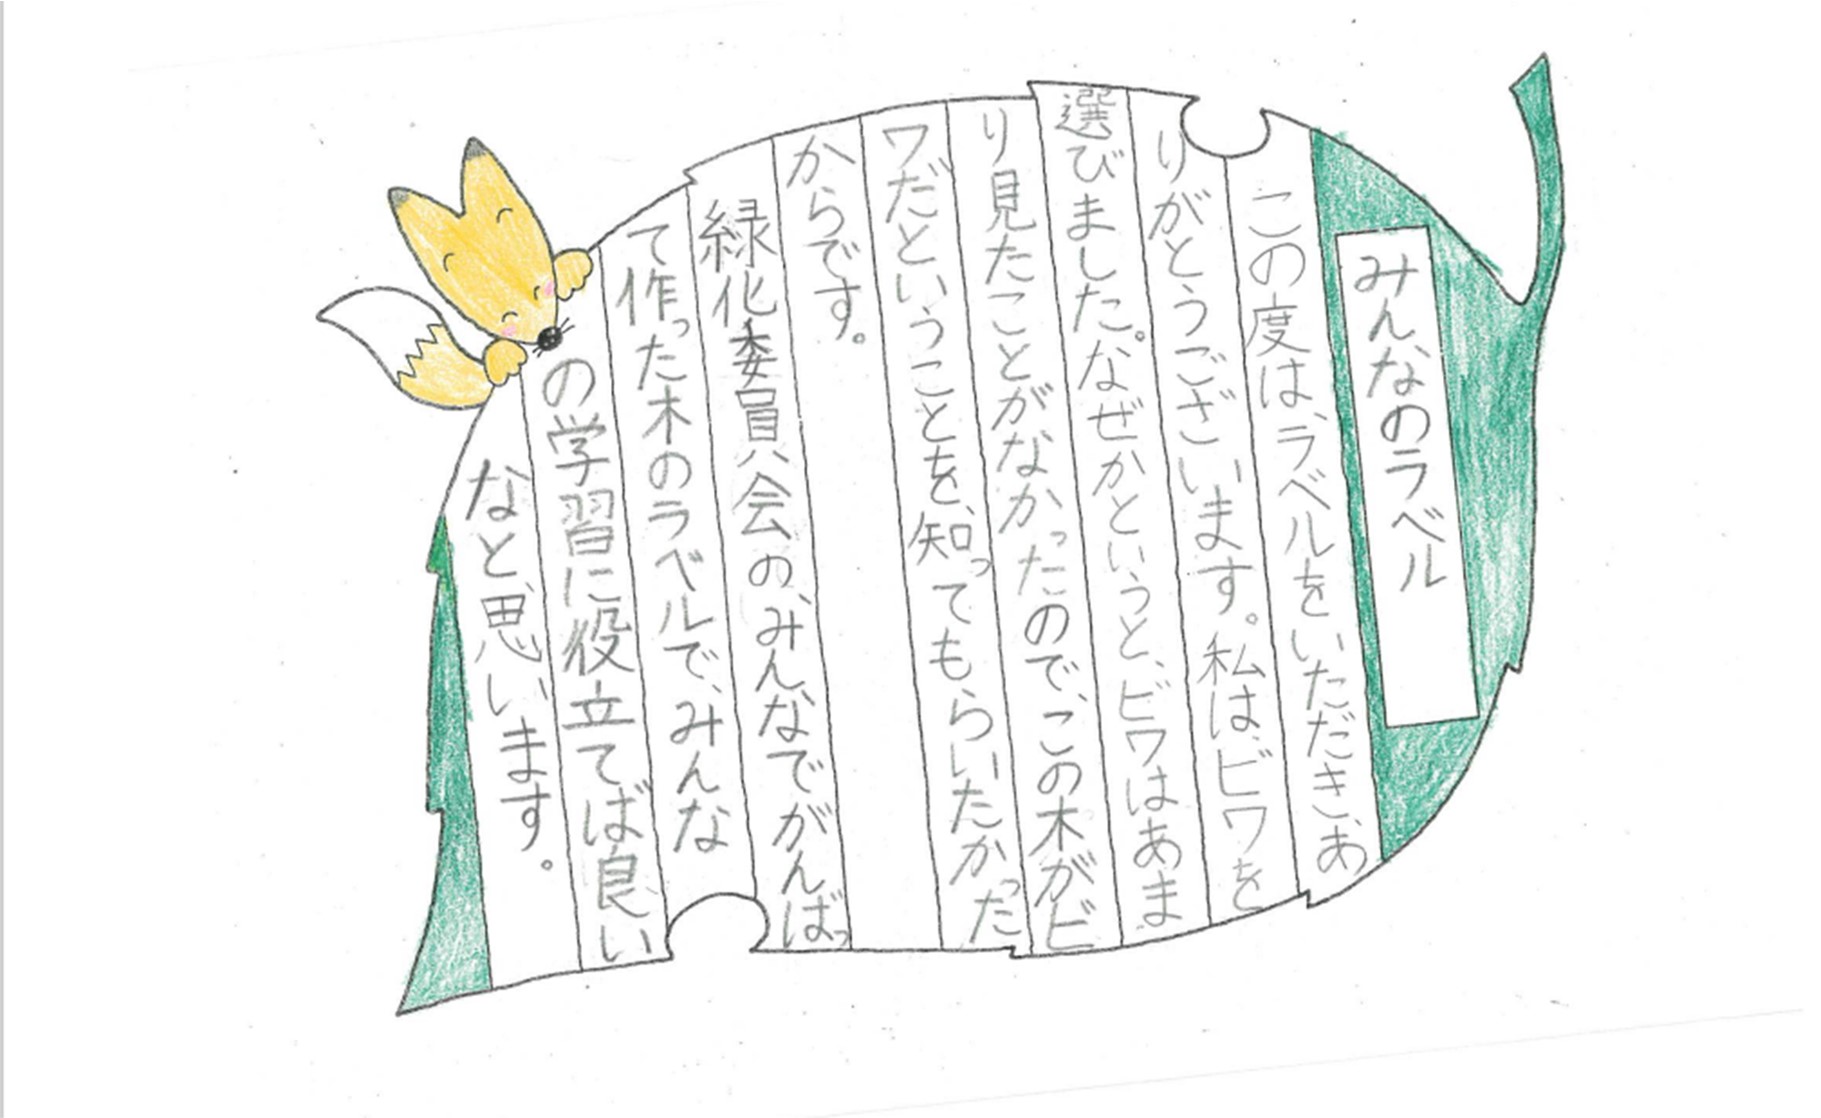 みんなのラベル
この度は、ラベルをいただき、あ
りがとうございます。私は、ビワを
選びました。なぜかというと、ビワはあま
り見たことがなかったので、この木がビ
ワだということを、知ってもらいたかった
からです。
緑化委員会の、みんなでがんばっ
て作った木のラベルで、みんな
の学習に役立てば良い
なと、思います。